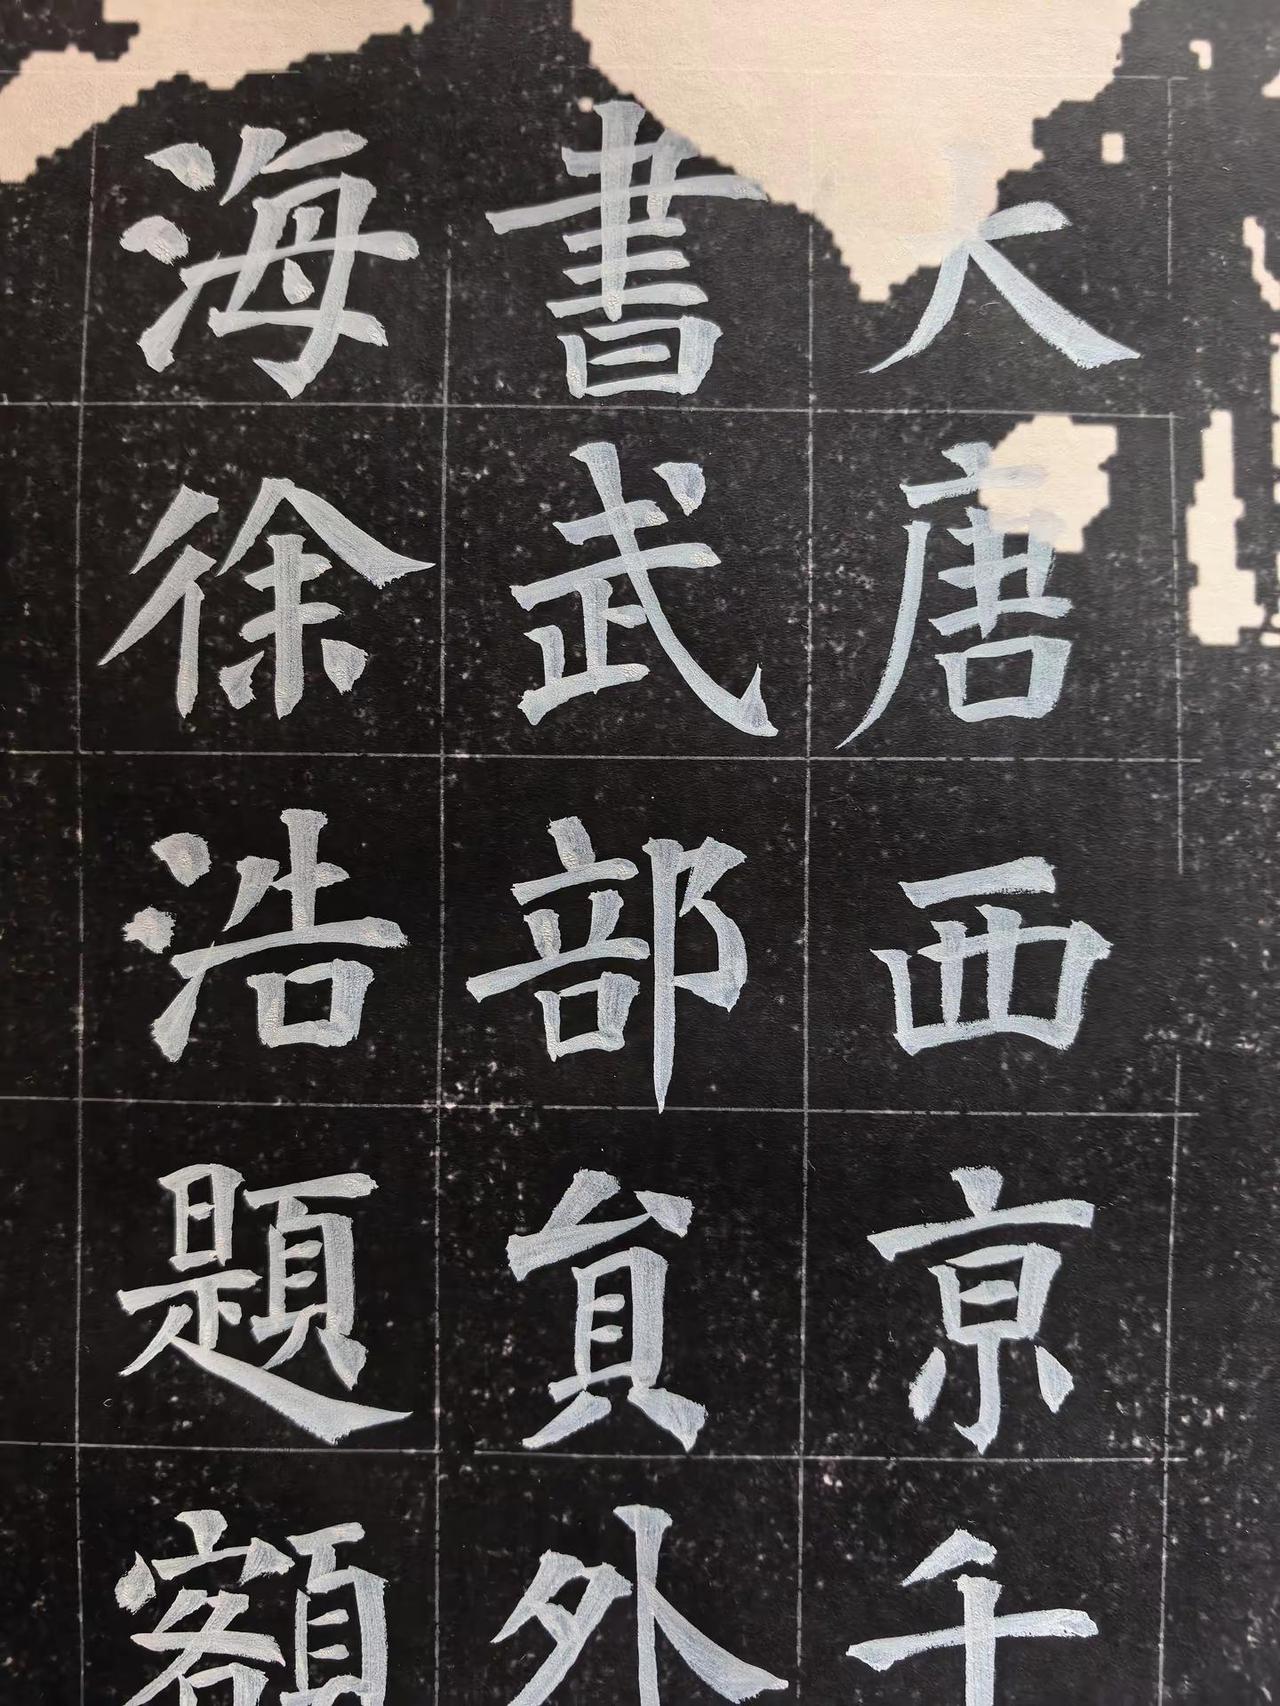 大唐西京千
書武部員外
海徐浩題額